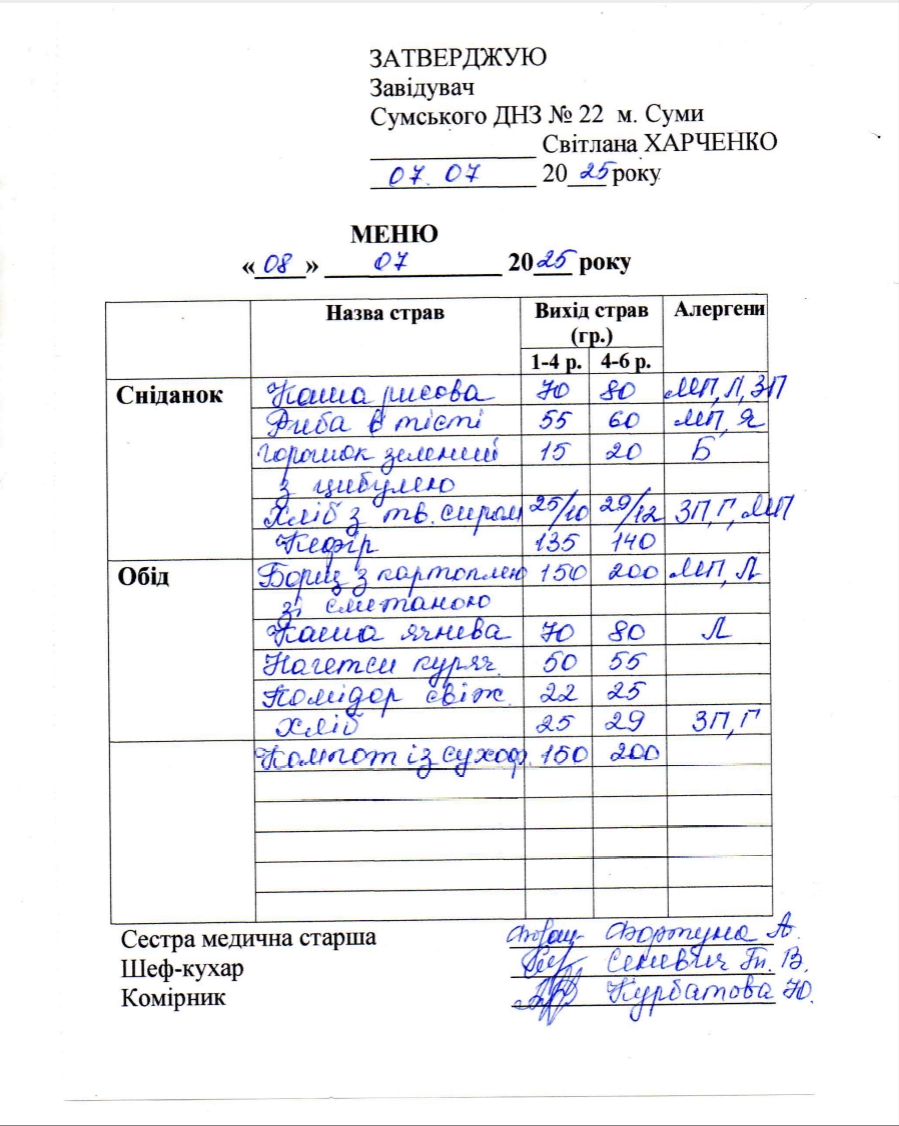 ЗАТВЕРДЖУЮ
Завідувач
Сумського ДНЗ № 22 м. Суми
______________ Світлана ХАРЧЕНКО
07. 07 2025 року
МЕНЮ
«08» 07 2025 року
Назва страв Вихід страв (гр.) Алергени
1-4 р. 4-6 р.
Сніданок Каша рисова 70 80 МП, Л, ЗП
Риба в тісті 55 60 МП, Я
Горошок зелений 15 20 Б
з цибулею
Хліб з тв. сиром 25/10 29/12 ЗП, Г, МП
Кефір 135 140
Обід Борщ з картоплею 150 200 МП, Л
зі сметаною
Каша ячнева 70 80 Л
Нагетси куряч. 50 55
Помідор свіж. 22 25
Хліб 25 29 ЗП, Г
Компот із сухоф. 150 200
Сестра медична старша Фортуна А.
Шеф-кухар Сеневич Т. В.
Комірник Курбатова Ю.